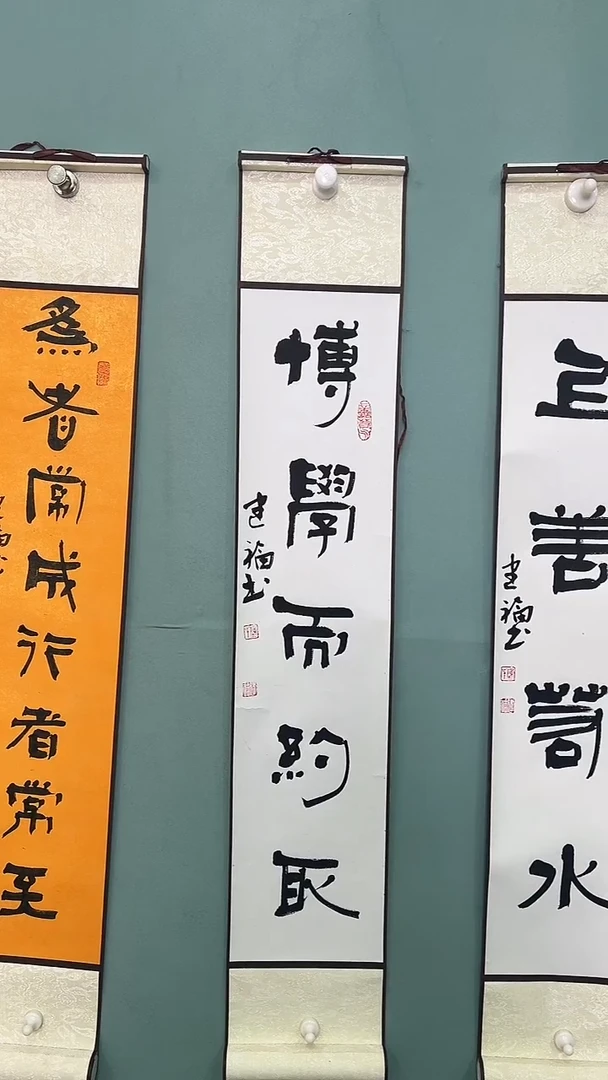 上善若水
建福书
博學而約取
建福书
為者常成行者常至